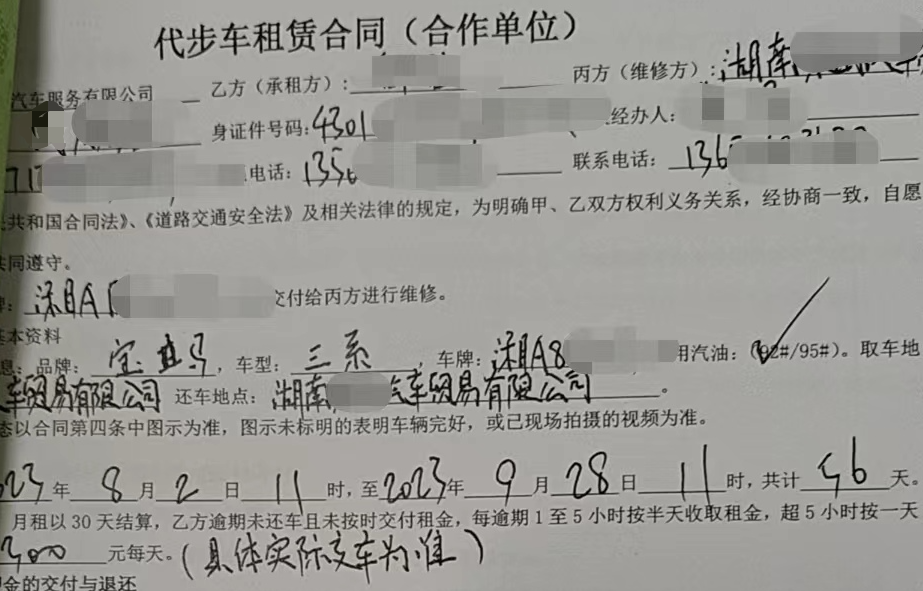 代步车租赁合同（合作单位）
汽车服务有限公司 乙方（承租方）： 丙方（维修方）：湖南
身证件号码：4301 经办人：
电话：135 联系电话：136
共和国合同法》、《道路交通安全法》及相关法律的规定，为明确甲、乙双方权利义务关系，经协商一致，自愿
共同遵守。
湘A 交付给丙方进行维修。
基本资料
息：品牌：宝马，车型：三系，车牌：湘A8 用汽油：（92#/95#）。取车地
车贸易有限公司 还车地点：湖南 汽车贸易有限公司。
态以合同第四条中图示为准，图示未标明的表明车辆完好，或已现场拍摄的视频为准。
2023年8月2日11时，至2023年9月28日11时，共计56天。
月租以30天结算，乙方逾期未还车且未按时交付租金，每逾期1至5小时按半天收取租金，超5小时按一天
300元每天。（具体实际交车为准）
金的交付与退还